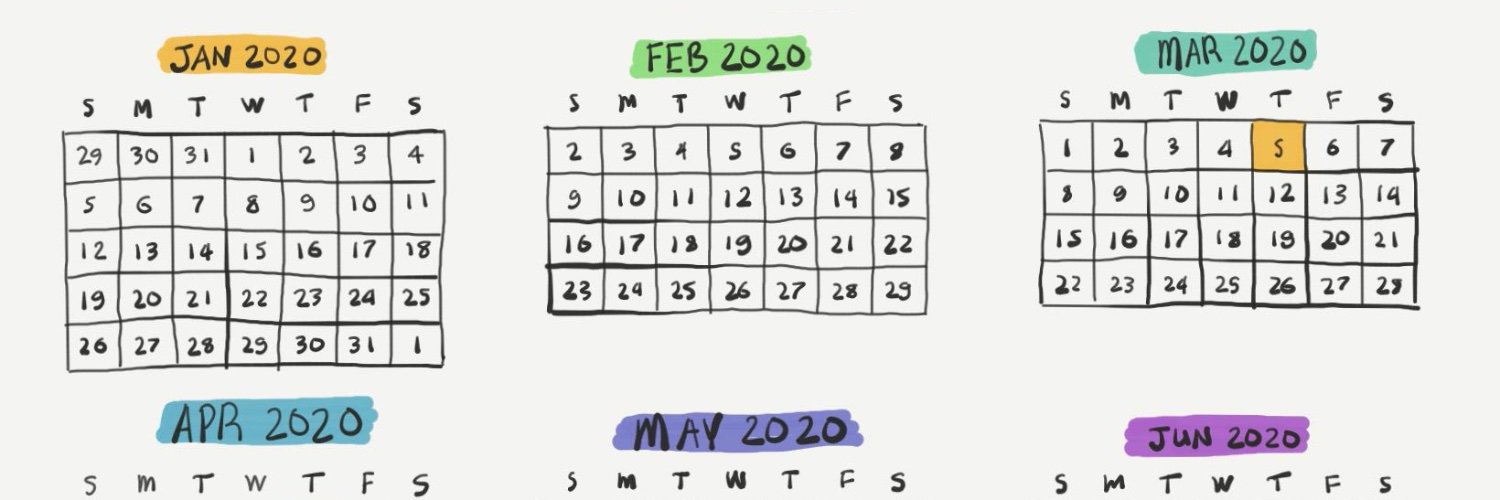 JAN 2020
S M T W T F S
29 30 31 1 2 3 4
5 6 7 8 9 10 11
12 13 14 15 16 17 18
19 20 21 22 23 24 25
26 27 28 29 30 31 1
FEB 2020
S M T W T F S
2 3 4 5 6 7 8
9 10 11 12 13 14 15
16 17 18 19 20 21 22
23 24 25 26 27 28 29
MAR 2020
S M T W T F S
1 2 3 4 5 6 7
8 9 10 11 12 13 14
15 16 17 18 19 20 21
22 23 24 25 26 27 28
APR 2020
S M T W T F S
MAY 2020
S M T W T F S
JUN 2020
S M T W T F S